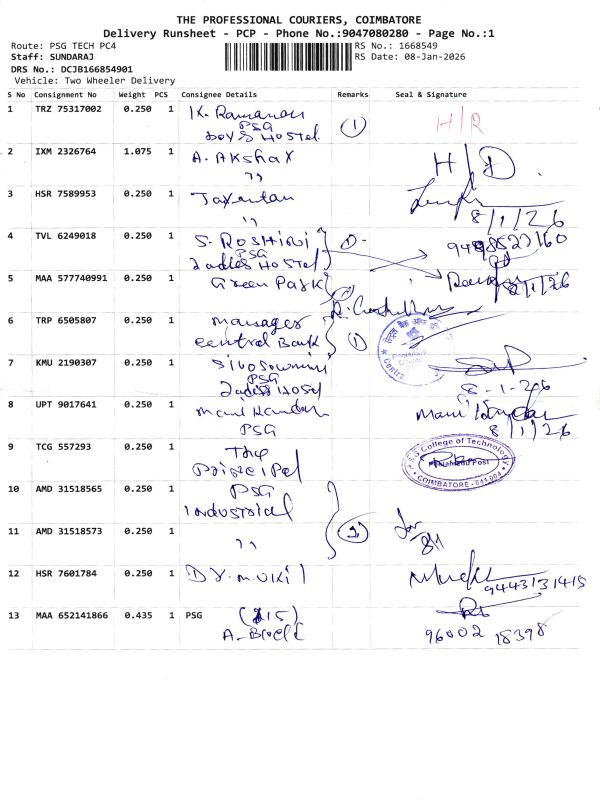 THE PROFESSIONAL COURIERS, COIMBATORE
Delivery Runsheet - PCP - Phone No.:9047080280 - Page No.:1
Route: PSG TECH PC4
RS No.: 1668549
Staff: SUNDARAJ
RS Date: 08-Jan-2026
DRS No.: DCJB166854901
Vehicle: Two Wheeler Delivery
S No Consignment No Weight PCS Consignee Details Remarks Seal & Signature
1 TRZ 75317002 0.250 1 K. Ramanan
PSG
boys Hostel
(1)
H/R
2 IXM 2326764 1.075 1 A. Akshay
"
H/D.
3 HSR 7589953 0.250 1 Jayantan
"
8/1/26
4 TVL 6249018 0.250 1 S. ROSHINI
PSG
Ladies Hostel
(1)
5 MAA 577740991 0.250 1 Green Park
8/1/26
6 TRP 6505807 0.250 1 manager
Central Bank
(1)
7 KMU 2190307 0.250 1
PSG
Ladies Hostel
8 UPT 9017641 0.250 1 Manikandan
PSG
8/1/26
9 TCG 557293 0.250 1 The
Principal
PSG College of Technology
COIMBATORE - 641 004
10 AMD 31518565 0.250 1 PSG
Industrial
11 AMD 31518573 0.250 1 "
8/1
12 HSR 7601784 0.250 1 Dr. m. Ukil
9443131415
13 MAA 652141866 0.435 1 PSG
A-Block
96002 18398